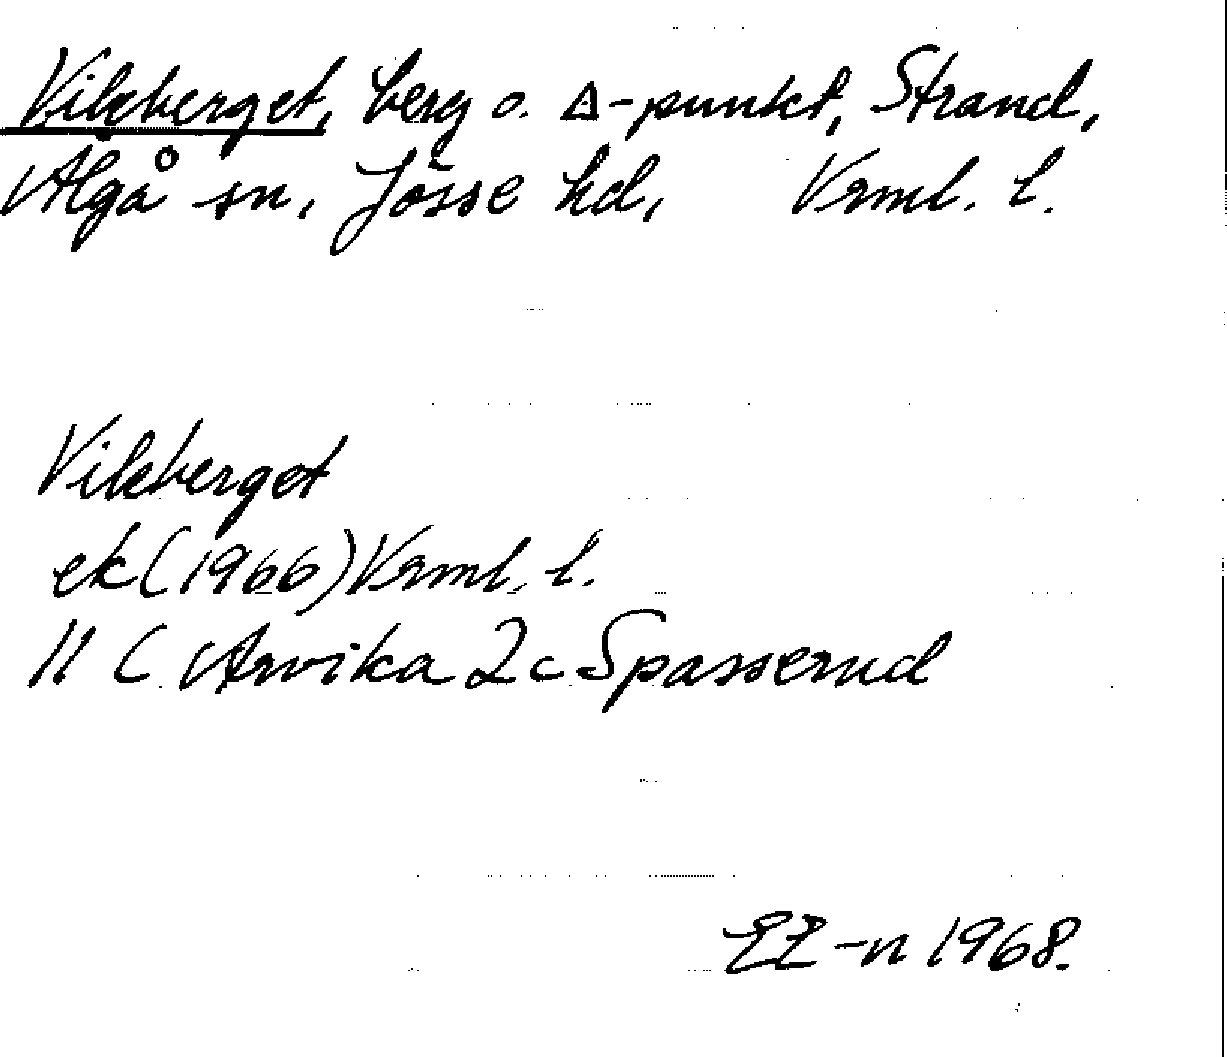 Vikberget, berg o. Δ-punkt, Strand,
Älgå sn, Jösse hd, Vrml. l.
Vikberget
ek (1966) Vrml. l.
11 C Arvika 2c Spasserud
EE-n 1968.